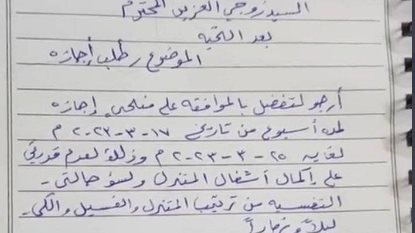 السيد زوجي العزيز المحترم
بعد التحيه
الموضوع / طلب إجازه
أرجو التفضل بالموافقه على منحي إجازه
لمده أسبوع من تاريخ ١٧-٣-٢٠٢٣ م
لغايه ٢٥-٣-٢٠٢٣ م وذلك لعدم قدرتي
على إكمال أشغال المنزل ولسؤ حالتي
النفسيه من ترتيب المنزل والغسيل والكي
ليلاً ونهاراً